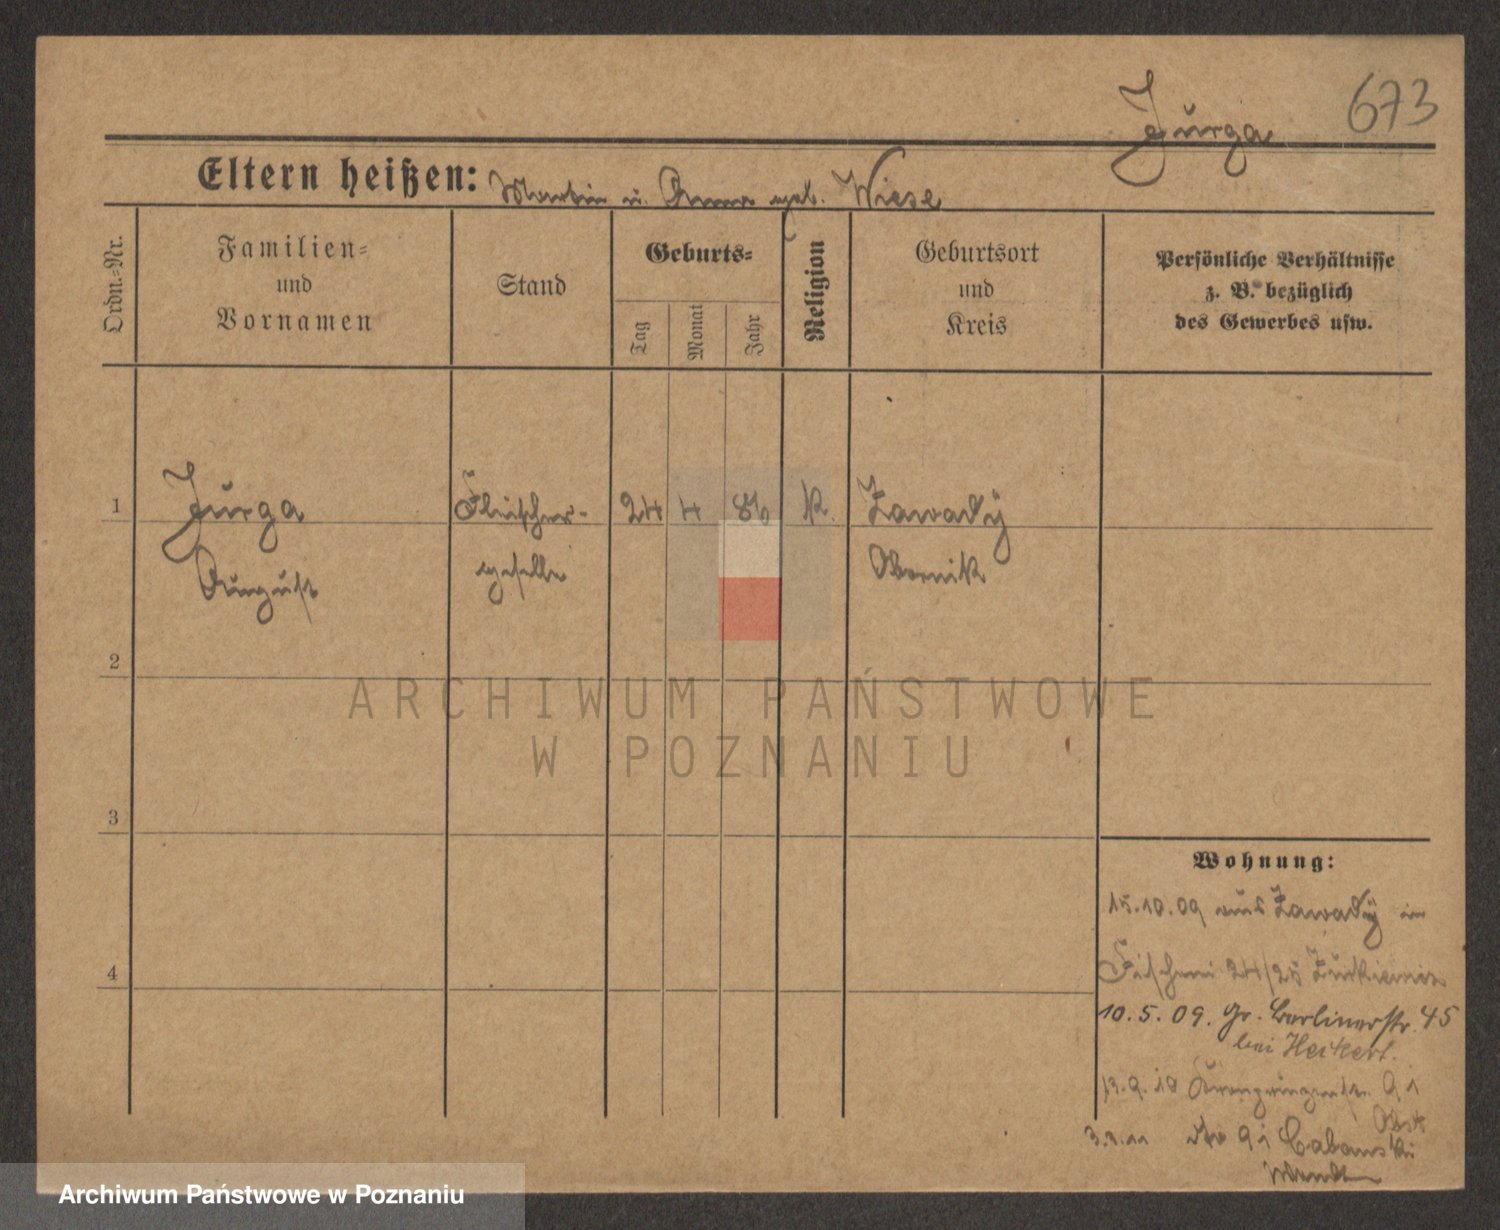 673
Jurga
Eltern heißen: Martin u. Anna geb. Wiese
Ordn.=Nr.
Familien=
und
Vornamen
Stand
Geburts=
Tag
Monat
Jahr
Religion
Geburtsort
und
Kreis
Persönliche Verhältnisse
z. B. bezüglich
des Gewerbes usw.
1
Jurga
August
Fleischer-
geselle
24 4 86
K.
Zawady
Obornik
2
3
4
ARCHIWUM PAŃSTWOWE
W POZNANIU
Wohnung:
15.10.09 aus Zawady in
Fischerei 24/25
10.5.09. Gr. Berlinerstr. 45
bei Heikert.
13.9.10 Kronprinzenstr. 91
3.1.11 91 Cabanski
Archiwum Państwowe w Poznaniu